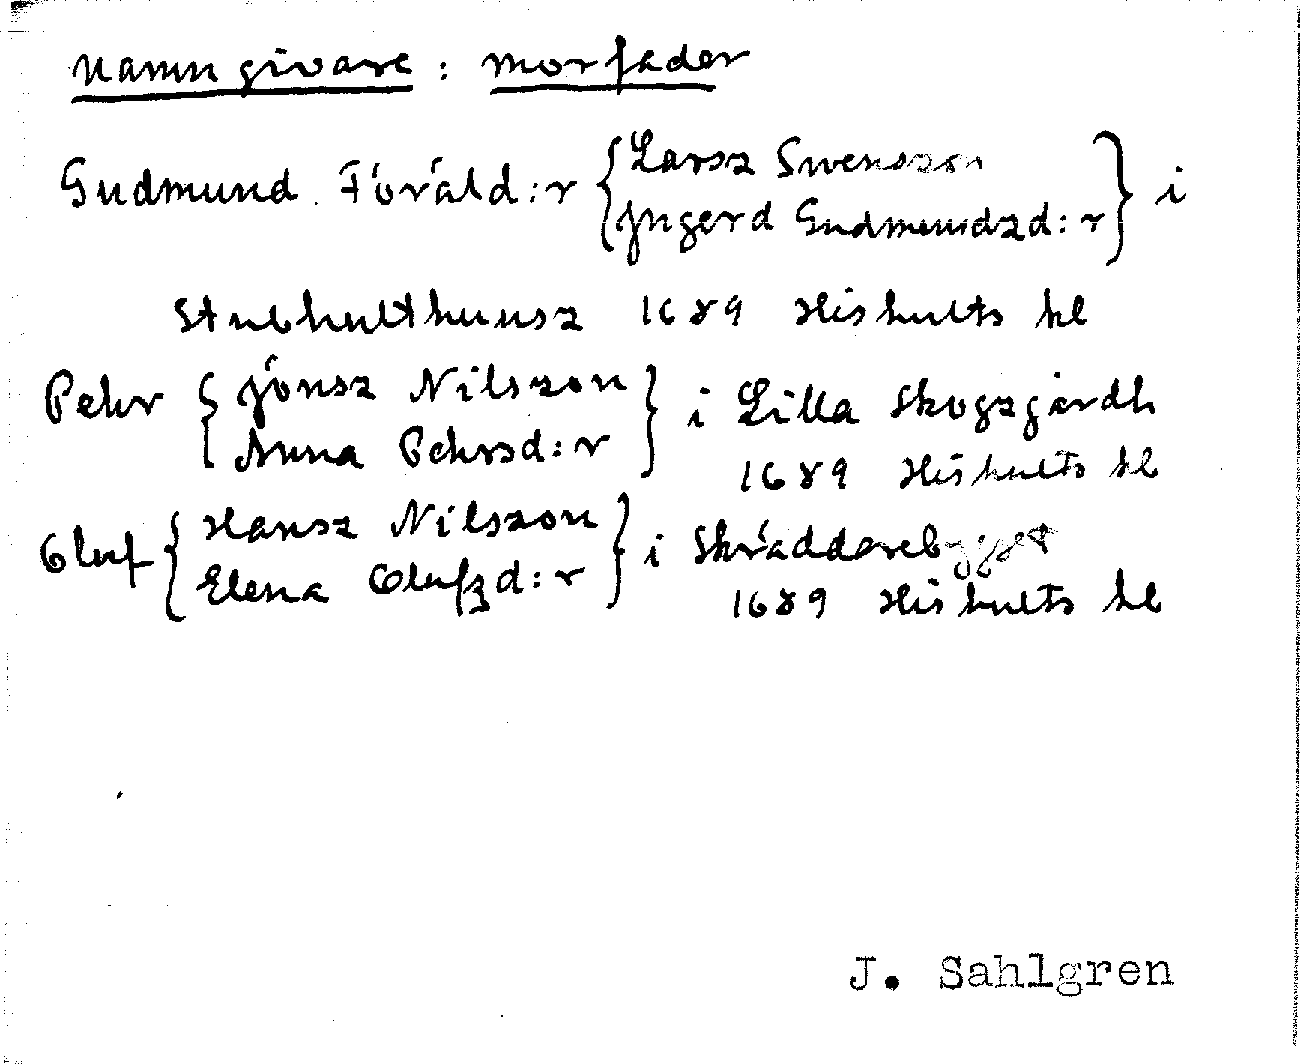 Namngivare : morfader
Gudmund. Föräld:r { Larsz Swenszon
Jngerd Gudmundzd:r } i
Stubhulthuusz 1689 Hishults kb
Pehr { Jönsz Nilszon
Anna Pehrsd:r } i Lilla Skogzgårdh
1689 Hishults kb
Oluf { Hansz Nilszon
Elena Olufzd:r } i Skräddarebygget
1689 Hishults kb
J. Sahlgren